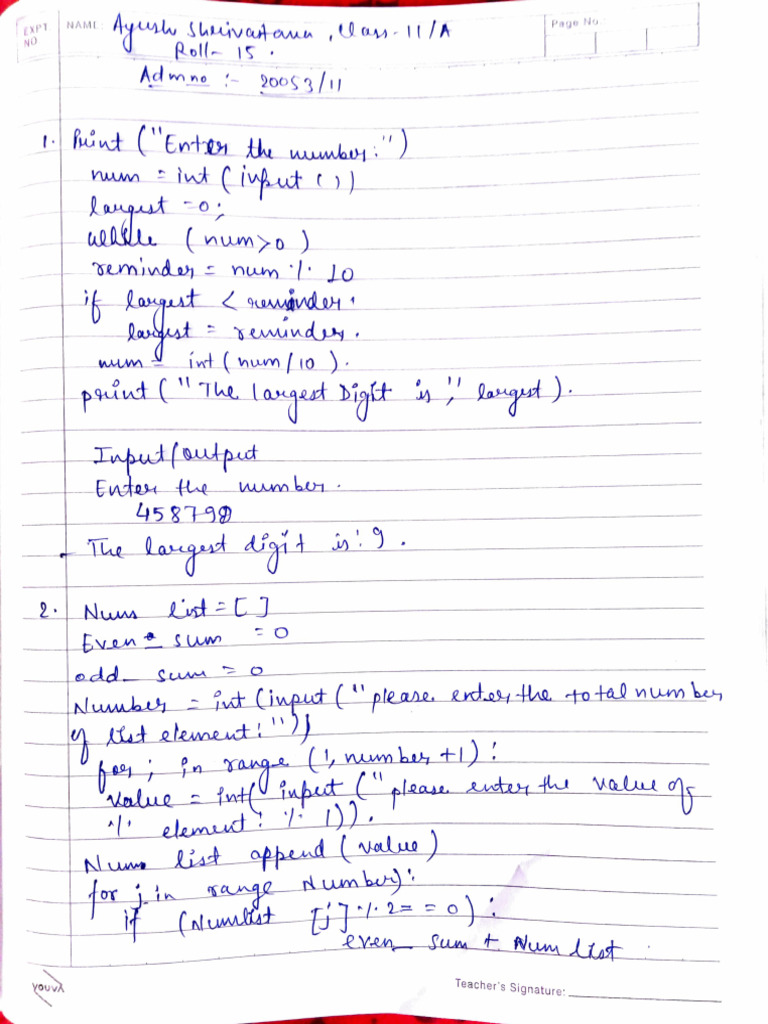 EXPT NO
NAME: Ayush Shrivastava, Class-11/A
Page No.
Roll- 15.
Admno :- 20053/11
1. Print ("Enter the number:")
num = int (input ())
largest =0;
while (num>0)
reminder = num % 10
if largest < reminder.
largest = reminder.
num = int (num/10).
print ("The largest Digit is," largest).
Input/output
Enter the number.
458790
- The largest digit is: 9.
2. Num list = [ ]
Even_ sum = 0
odd_ sum = 0
Number = int (input ("please enter the total number
of list element:"))
for i in range (1, number +1):
value = int( input ("please enter the value of
%1 element: % 1)).
Num list append (value)
for j in range Number):
if (Numlist [j] % 2 = = 0):
even_ sum + Num list.
youva
Teacher's Signature: